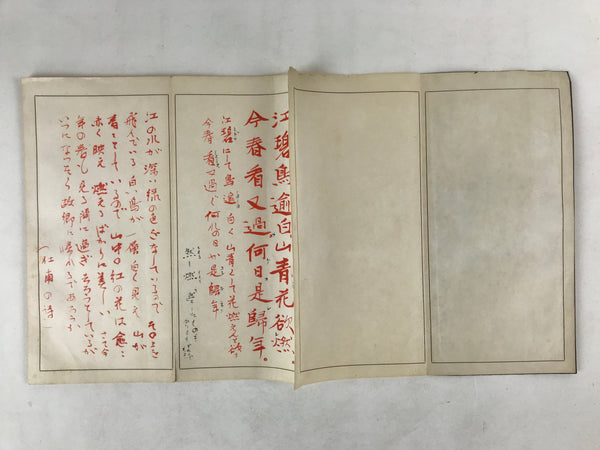 江碧鳥逾白山青花欲燃
今春看又過何日是歸年。
江碧にして鳥逾白く山青くして花燃えんと欲
今春看又過ぐ何れの日か是歸年
江の水が深い緑の色をなしているので その上を
飛んでいる白い鳥が一層白く見え 山が
青々としているので 山中の紅の花は愈々
赤く映え 燃えるばかりに美しい さて今
年の春も見る間に過ぎ去ろうとしているが
いつになったら故郷に帰れるであろうか
(杜甫の詩)